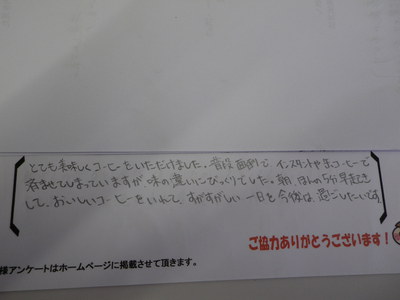 とても美味しくコーヒーをいただけました。普段面倒でインスタントや缶コーヒーで
済ませてしまっていますが味の違いにびっくりでした。朝、ほんの5分早起き
して、おいしいコーヒーをいれて、すがすがしい一日を今後は、過ごしたいです。
ご協力ありがとうございます!
様アンケートはホームページに掲載させて頂きます。